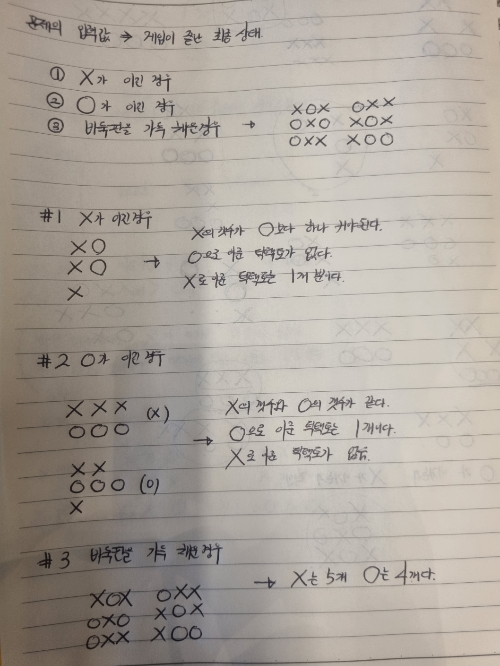 문제의 입력값 → 게임이 끝난 최종 상태.
① X가 이긴 경우
② O가 이긴 경우
③ 바둑판을 가득 채운 경우 →
XOX OXX
OXO XOX
OXX XOO
#1 X가 이긴경우
XO
XO
X
→ X의 갯수가 O보다 하나 커야된다.
O으로 이룬 틱택토가 없다.
X로 이룬 틱택토는 1개 뿐이다.
#2 O가 이긴 경우
XXX (X)
OOO
XX
OOO (O)
X
→ X의 갯수와 O의 갯수가 같다.
O으로 이룬 틱택토는 1개이다.
X로 이룬 틱택토가 없음.
#3 바둑판을 가득 채운경우
XOX OXX
OXO XOX
OXX XOO
→ X는 5개 O는 4개다.